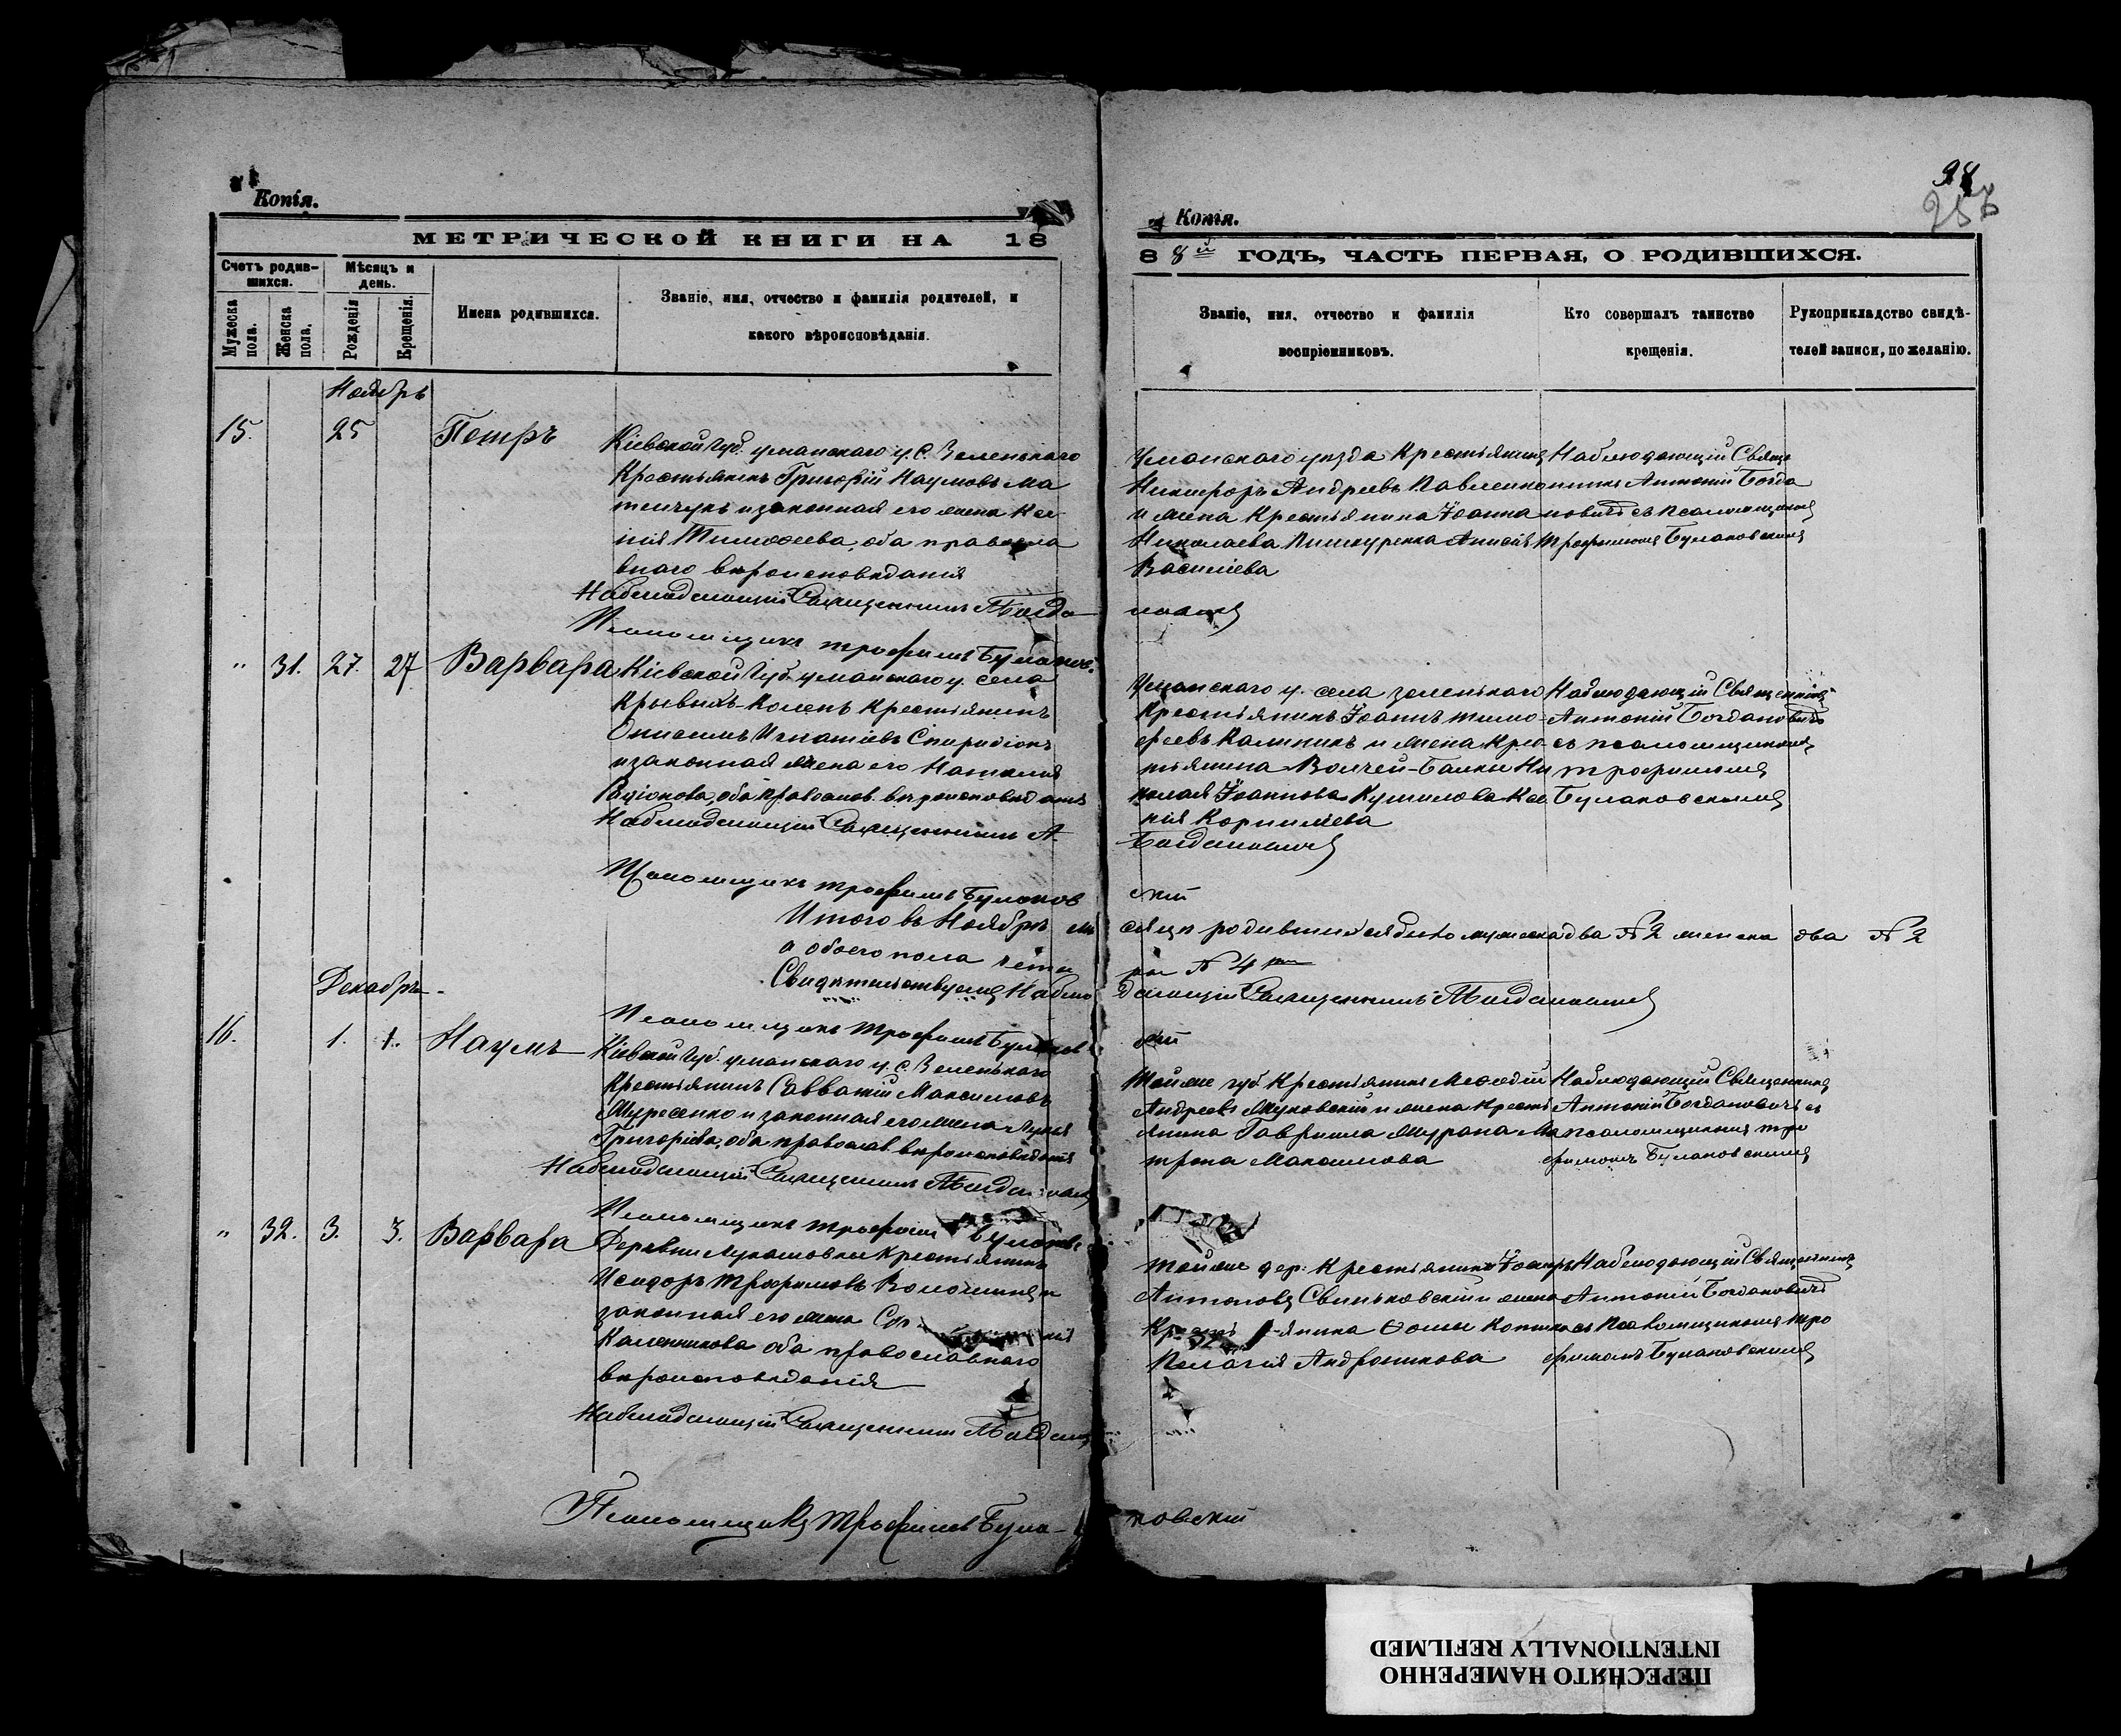 Копія.
МЕТРИЧЕСКОЙ КНИГИ НА 18
Счетъ родив-
шихся.
Мѣсяцъ и
день.
Мужеска
пола.
Женска
пола.
Рожденія
Крещенія.
Имена родившихся.
Званіе, имя, отчество и фамилія родителей, и
какого вѣроисповѣданія.
Ноябрь
15. 25 Петръ
Кіевской Губ. уманскаго у. с. Зеленькаго
Крестьянинъ Григорій Наумовъ Ма
и законная его жена
Тимоѳеева, оба правосла
внаго вѣроисповѣданія
Наблюдающій Священникъ Богда
Псаломщикъ Трофимъ Буланов
" 31. 27. 27 Варвара
Кіевской Губ. уманскаго у. села
Крывыхъ-Коленъ Крестьянинъ
Онисимъ Игнатіевъ Спиридонъ
и законная жена его Наталия
Родіонова, оба православ. вѣроисповѣданія
Наблюдающій Священникъ А.
Псаломщикъ Трофимъ Буланов
Итого въ Ноябрѣ мѣ
а обоего пола четы
Свидѣтельствуемъ Наблю
Декабрь
Псаломщикъ Трофимъ Буланов
16. 1. 1. Наумъ
Кіевской Губ. уманскаго у. с. Зеленькаго
Крестьянинъ Савватій Максимовъ
и законная его жена
Григоріева, оба православ. вѣроисповѣданія
Наблюдающій Священникъ Богданович
Псаломщикъ Трофимъ Буланов
" 32. 3. 3. Варвара
Деревни Лукашовки Крестьянинъ
Исидоръ Трофимовъ
законная его жена
Каленикова оба православнаго
вѣроисповѣданія
Наблюдающій Священникъ Богдан
Псаломщикъ Трофимъ Була-
98
Копія.
8 8й ГОДЪ, ЧАСТЬ ПЕРВАЯ, О РОДИВШИХСЯ.
Званіе, имя, отчество и фамилія
воспріемниковъ.
Кто совершалъ таинство
крещенія.
Рукоприкладство свидѣ-
телей записи, по желанію.
Уманскаго уѣзда Крестьянинъ
Никифоръ Андреевъ Павленко
и жена Крестьянина Іоанна
Николаева Анисія
Васильева
Наблюдающій Свящ
нникъ Антоній Богда
новичъ съ псаломщикомъ
Трофимомъ Булановскимъ
новичъ
Уманскаго у. села Зеленькаго
Крестьянинъ Іоаннъ Тимо-
феевъ Калиникъ и жена Крес
тьянина Волчей-Балки Ни
колая Іоаннова Ксе
нія Корнилиева
Наблюдающій Священникъ
Антоній Богдановичъ
съ псаломщикомъ
Трофимомъ
Булановскимъ
Богданович
скій
сяцѣ родившихся было мужеска два № 2 женска два № 2
ре № 4
дающій Священникъ Богданович
скій
Той же губ. Крестьянинъ Меѳодій
Андреевъ и жена Кресть
янина Гавриила Ма
трона Максимова
Наблюдающій Священникъ
Антоній Богдановичъ съ
псаломщикомъ Тро
фимомъ Булановскимъ
Той же дер. Крестьянинъ
Антоновъ и жена
Крестьянина Ѳомы
Пелагія Андроникова
Наблюдающій Священникъ
Антоній Богдановичъ
съ Псаломщикомъ Тро
фимомъ Булановскимъ
новскій
ПЕРЕСНЯТО НАМЕРЕННО
INTENTIONALLY REFILMED